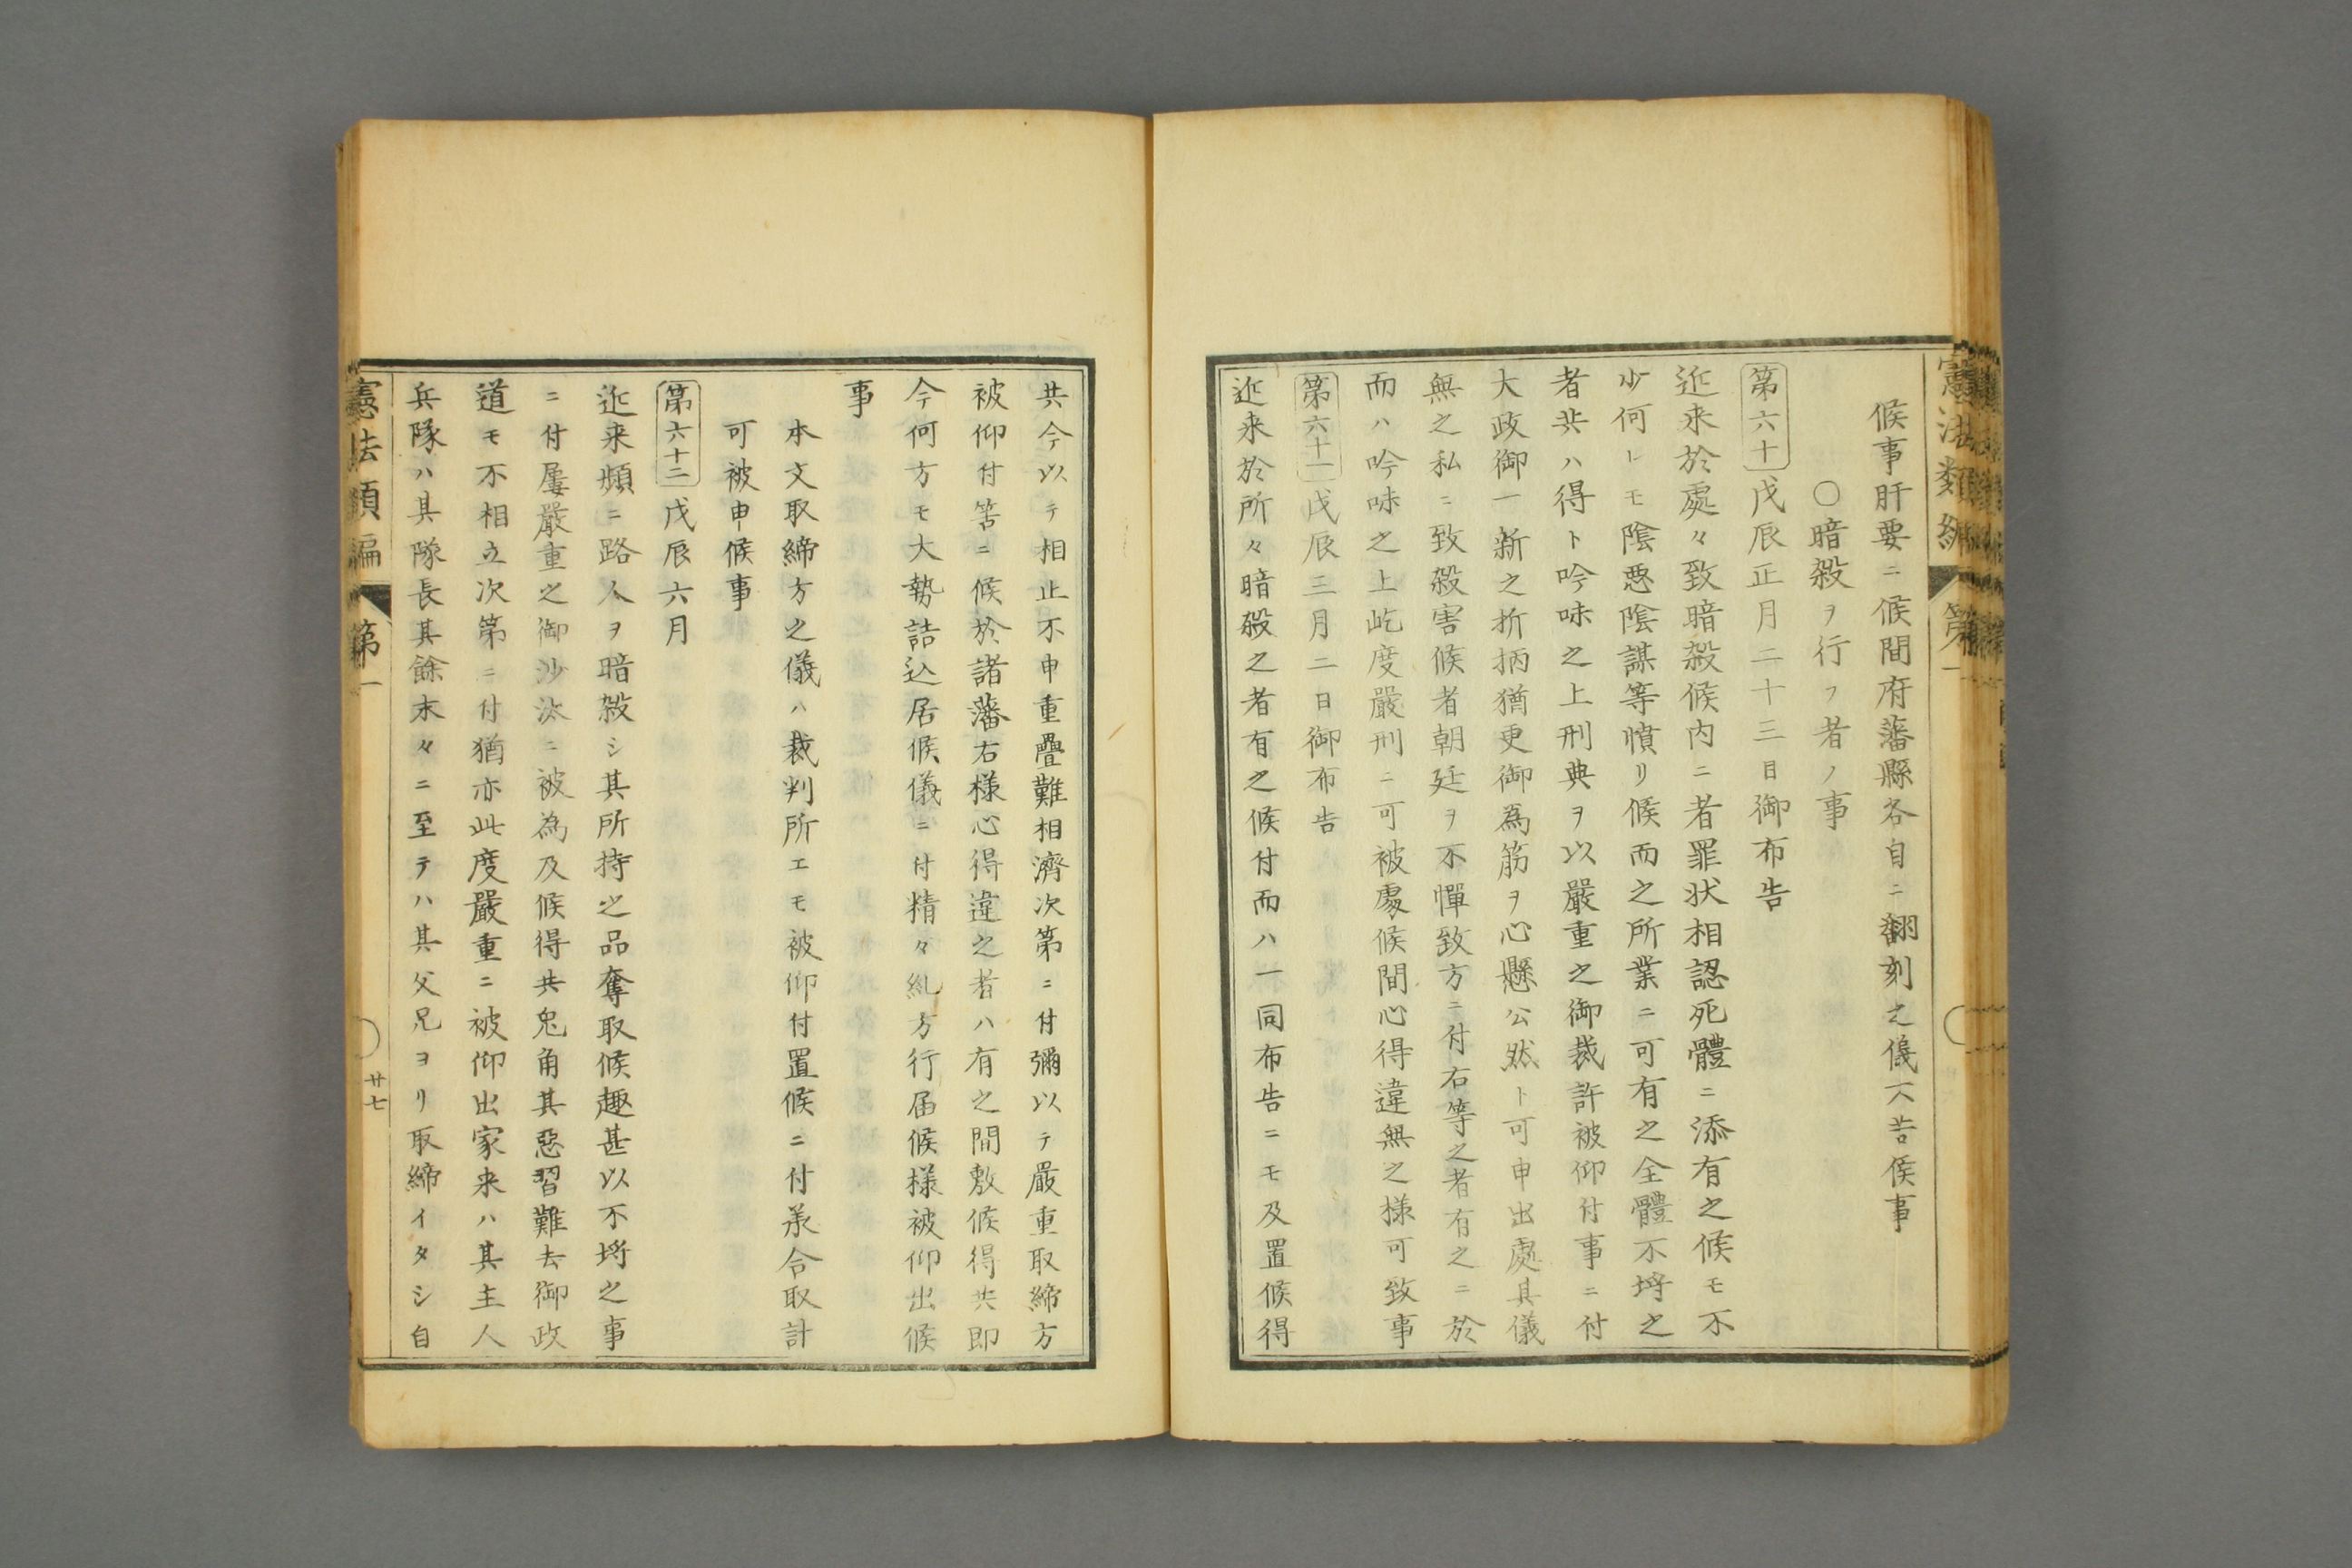 憲法類編 第一
候事肝要ニ候間府藩縣各自ニ翻刻之儀不苦候事
○暗殺ヲ行フ者ノ事
第六十 戊辰正月二十三日御布告
近来於處々致暗殺候内ニ者罪状相認死體ニ添有之候モ不
少何レモ陰悪陰謀等憤リ候而之所業ニ可有之全體不埒之
者共ハ得ト吟味之上刑典ヲ以嚴重之御裁許被仰付事ニ付
大政御一新之折柄猶更御為筋ヲ心懸公然ト可申出處其儀
無之私ニ致殺害候者朝廷ヲ不憚致方ニ付右等之者有之ニ於
而ハ吟味之上屹度嚴刑ニ可被處候間心得違無之様可致事
第六十一 戊辰三月二日御布告
近来於所々暗殺之者有之候付而ハ一同布告ニモ及置候得
共今以テ相止不申重疊難相濟次第ニ付彌以テ嚴重取締方
被仰付筈ニ候於諸藩右様心得違之者ハ有之間敷候得共即
今何方モ大勢詰込居候儀ニ付精々糺方行届候様被仰出候
事
本文取締方之儀ハ裁判所エモ被仰付置候ニ付羕合取計
可被申候事
第六十二 戊辰六月
近来頻ニ路人ヲ暗殺シ其所持之品奪取候趣甚以不埒之事
ニ付屢嚴重之御沙汰ニ被為及候得共兎角其惡習難去御政
道モ不相立次第ニ付猶亦此度嚴重ニ被仰出家来ハ其主人
兵隊ハ其隊長其餘末々ニ至テハ其父兄ヨリ取締イタシ自
憲法類編 第一 廿七